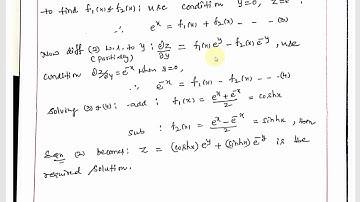 to find f₁(x) & f₂(x): use condition y=0, z=eˣ
∴ eˣ = f₁(x) + f₂(x) - - - (3)
Now diff (2) w.r. to y : ∂z/∂y = f₁(x) e^y - f₂(x) e^-y, use
(partially)
condition ∂z/∂y = e^-x when y=0,
∴ e^-x = f₁(x) - f₂(x) - - - (4)
Solving (3) & (4): add : f₁(x) = (e^x + e^-x)/2 = coshx
sub : f₂(x) = (e^x - e^-x)/2 = sinhx, then
Eqn (2) becomes: z = (coshx) e^y + (sinhx) e^-y is the
required solution.